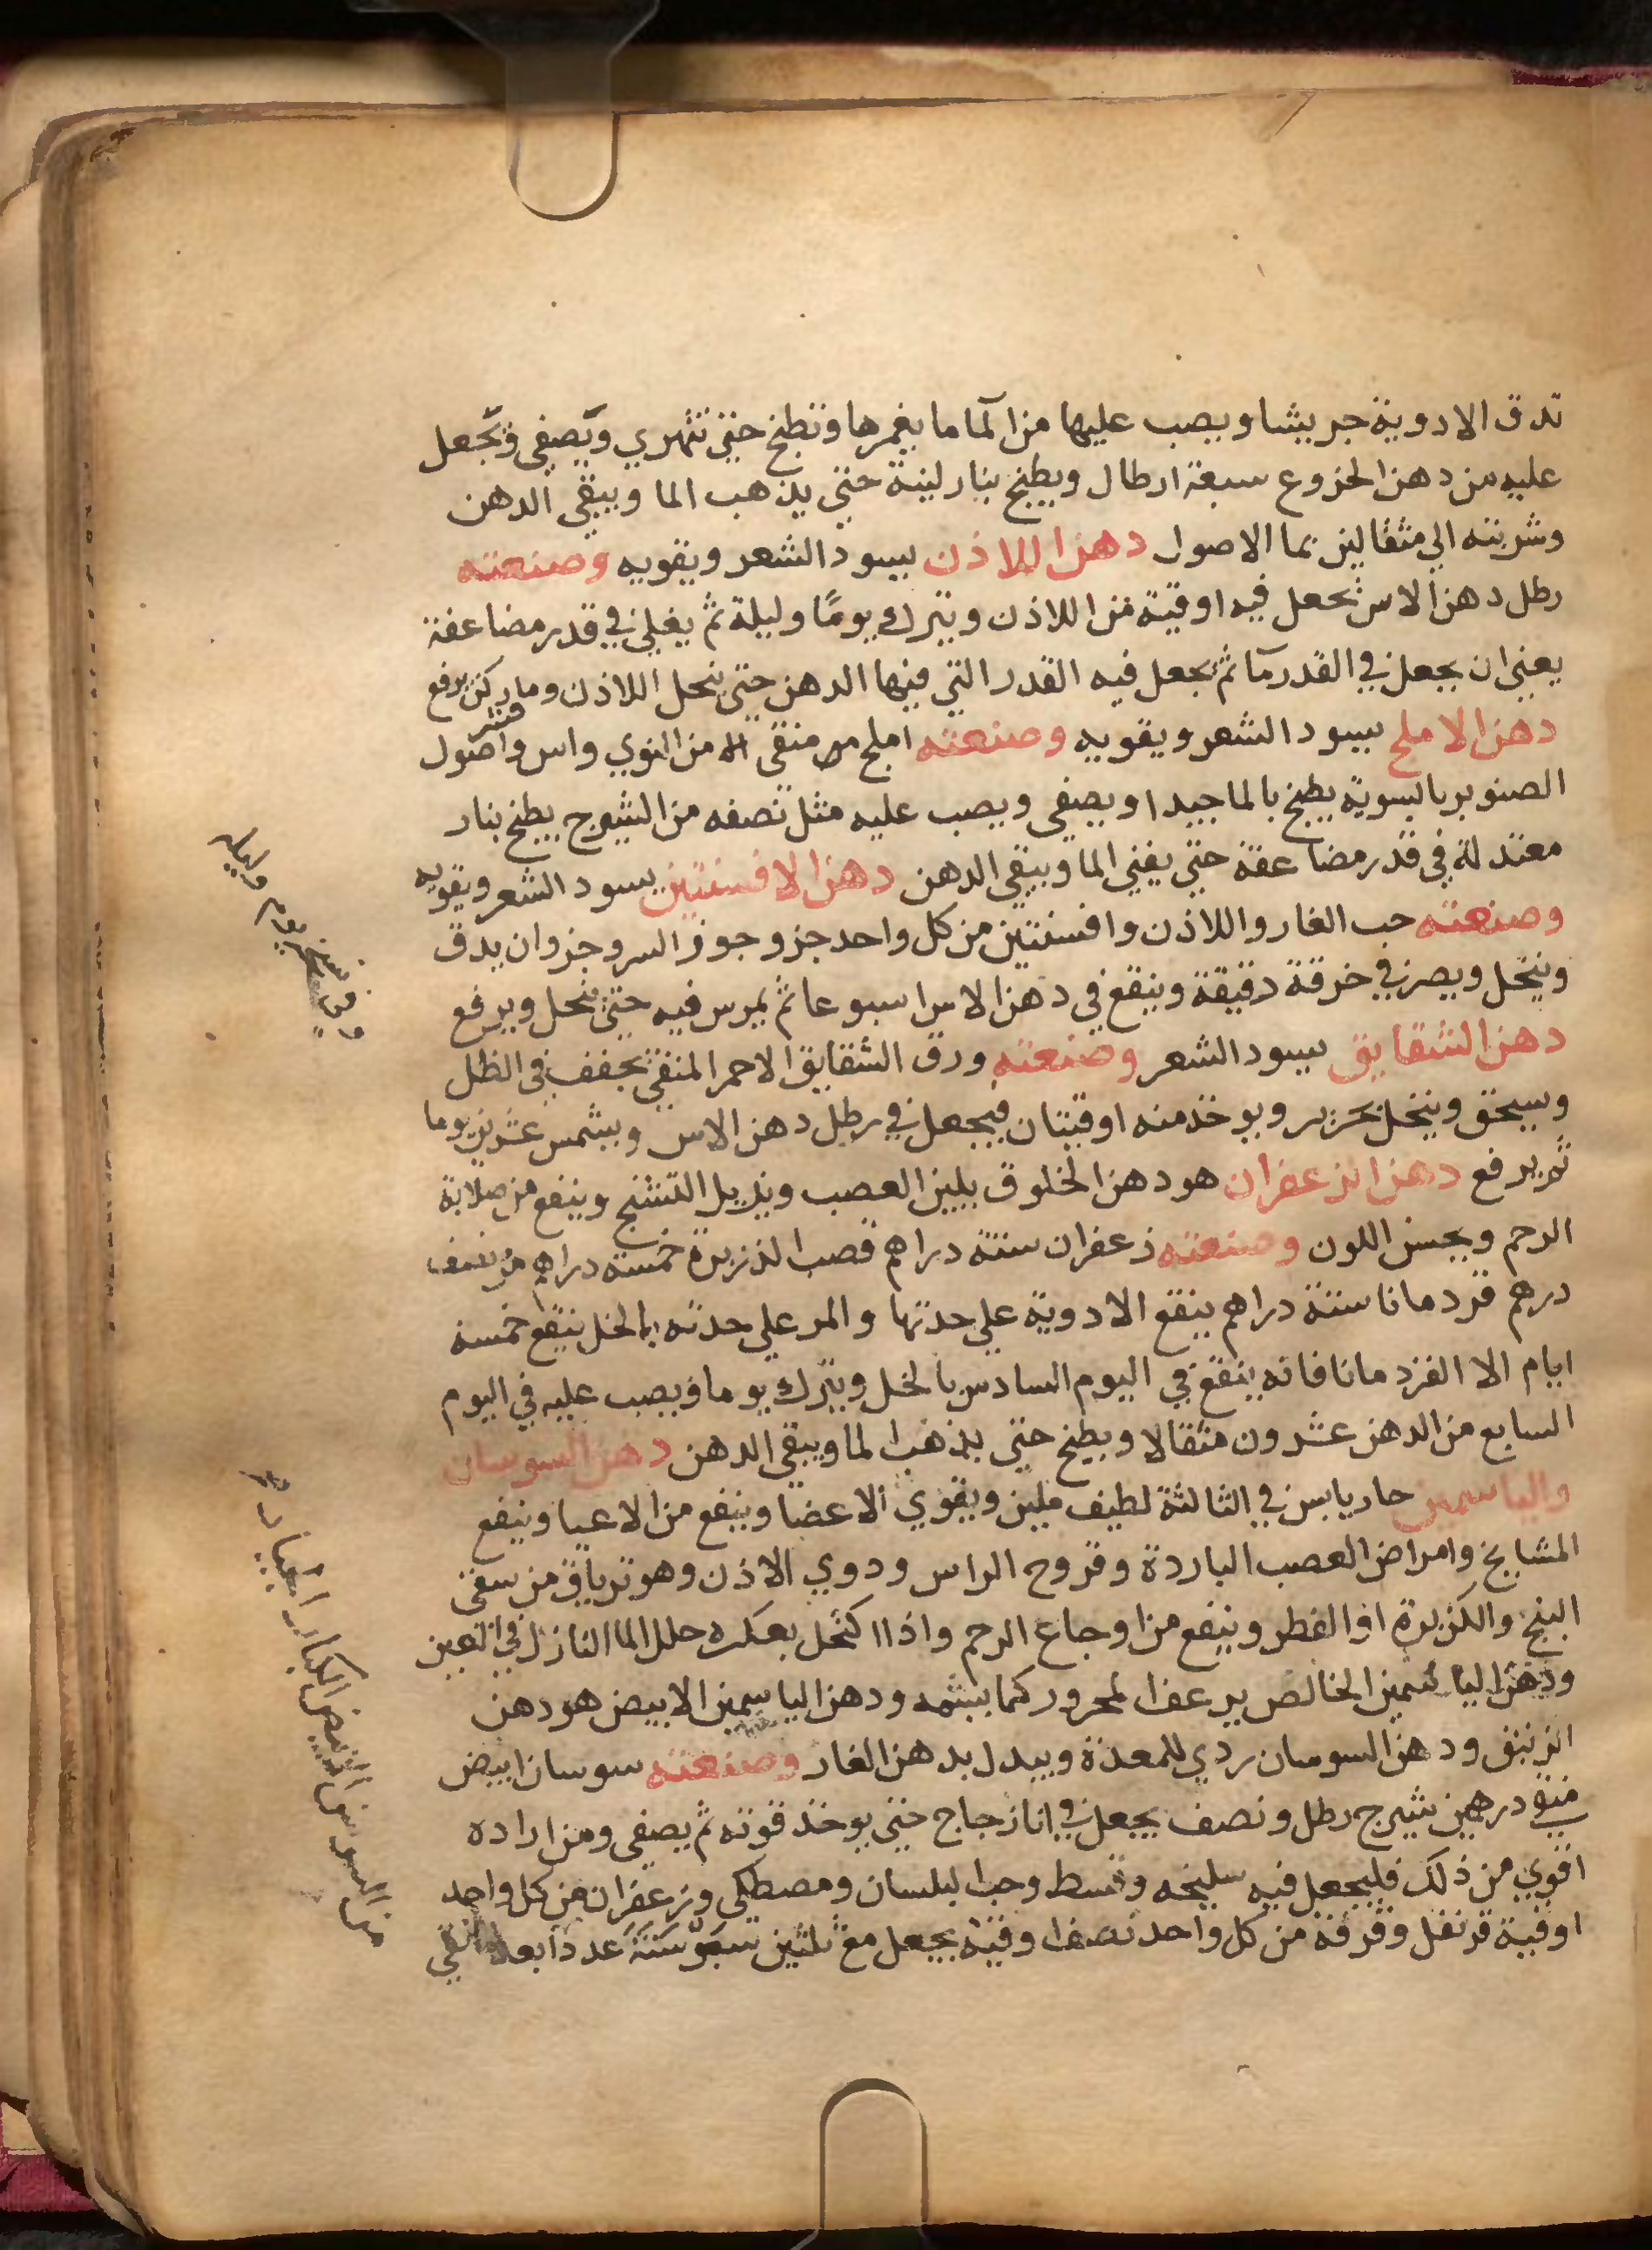 تدق الادوية جريشا ويصب عليها من المآ ما يغمرها وتطبخ حتي تتهري ويصفي ويجعل
عليه من دهن الخروع سبعة ارطال ويطبخ بنار لينة حتي يذهب الما ويبقي الدهن
وشربته الي مثقالين بما الاصول دهن اللاذن يسود الشعر ويقويه وصنعته
رطل دهن الاس يجعل فيه اوقية من اللاذن ويترك يومًا وليلة ثم يغلي في قدر مضاعفة
يعني ان يجعل في القدر مآ ثم يجعل فيه القدر التي فيها الدهن حتي ينحل اللاذن وما ركن يرفع
دهن الاملج يسود الشعر ويقويه وصنعته املج منقي من النوي واس وقشر اصول
الصنوبر بالسوية يطبخ بالما جيدا ويصفي ويصب عليه مثل نصفه من الشيرج يطبخ بنار
معتدلة في قدر مضاعفة حتي يفني الما ويبقي الدهن دهن الافسنتين يسود الشعر ويقويه
وصنعته حب الغار واللاذن وافسنتين من كل واحد جزو جوز السرو جزوان يدق
وينخل ويصر في خرقة دقيقة وينقع في دهن الاس اسبوعا ثم يمرس فيه حتي ينحل ويرفع
دهن الشقايق يسود الشعر وصنعته ورق الشقايق الاحمر المنقي يجفف في الظل
ويسحق وينخل بحرير ويوخذ منه اوقيتان فيجعل في رطل دهن الاس ويشمس عشرين يوما
ثم يرفع دهن الزعفران هو دهن الخلوق يلين العصب ويزيل التشنج وينفع من صلابة
الرحم ويحسن اللون وصنعته زعفران ستة دراهم قصب الذريرة خمسة دراهم مر نصف
درهم قردمانا ستة دراهم ينقع الادوية علي حدتها والمر علي حدته بالخل ينقع خمسة
ايام الا القردمانا فانه ينقع في اليوم السادس بالخل ويترك يوما ويصب عليه في اليوم
السابع من الدهن عشرون مثقالا ويطبخ حتي يذهب الما ويبقي الدهن دهن السوسان
والياسمين حار يابس في الثالثة لطيف ملين ويقوي الاعضا وينفع من الاعيا وينفع
المشايخ وامراض العصب الباردة وقروح الراس ودوي الاذن وهو ترياق من سقي
البنج والكزبرة او الفطر وينفع من اوجاع الرحم واذا اكتحل بعكره حلل الما النازل في العين
ودهن الياسمين الخالص يرعف المحرور كما يشمه ودهن الياسمين الابيض هو دهن
الزنبق ودهن السوسان ردي للمعدة ويبدل بدهن الغار وصنعته سوسان ابيض
منقي درهمين شيرج رطل ونصف يجعل في انا زجاج حتي يوخذ قوته ثم يصفي ومن اراده
اقوي من ذلك فليجعل فيه سليخه وقسط وحب البلسان ومصطكي وزعفران من كل واحد
اوقية قرنفل وقرفة من كل واحد نصف اوقية يجعل مع ثلثين سوسنة عددا بعد
من السوسن الابيض الكبار